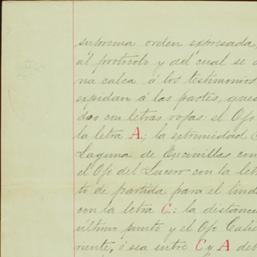 suprema orden expresada,
al protocolo y del cual se
na calca á los testimonios
expidan á las partes, que
dos con letras rojas: el Ojo
la letra A; la extremidad
Laguna de Encinillas con
el Ojo del Lucero con la let
to de partida para el lind
con la letra C: la distanc
último punto y el Ojo Calie
nente, ó sea entre C y A deb